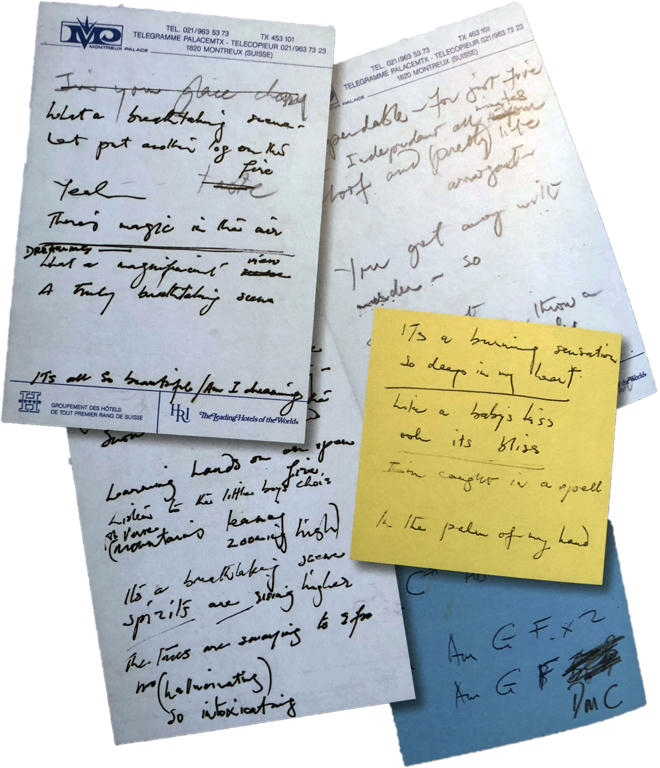 MP
MONTREUX PALACE
TEL. 021/963 53 73 TX 453 101
TELEGRAMME PALACEMTX - TELECOPIEUR 021/963 73 23
1820 MONTREUX (SUISSE)
your face
What a breathtaking scene -
Let put another log on this
fire
Yeah
There's magic in this air
DREAMING
What a magnificent view
A truly breathtaking scene
It's all so beautiful / Am I dreaming
H
GROUPEMENT DES HÔTELS
DE TOUT PREMIER RANG DE SUISSE
HRI
The Leading Hotels of the World
TEL. 021/963 53 73 TX 453 101
TELEGRAMME PALACEMTX - TELECOPIEUR 021/963 73 23
1820 MONTREUX (SUISSE)
PALACE
pendable - for just five
minutes
Independent all
oof and (pretty) life
arrogant
You get away with
murder - so
throw a
of the World
Its a burning sensation
So deep in my heart
Like a baby's kiss
ooh its bliss
I'm caught in a spell
In the palm of my hand
Snow
hands on an open
fire
Listen to the little boys choir
(Mountains leaning
zooming high)
Its a breathtaking scene
spirits are rising higher
The Trees are swaying to &
(hallucinating)
So intoxicating
Am G F. x 2
Am G F
Dm C